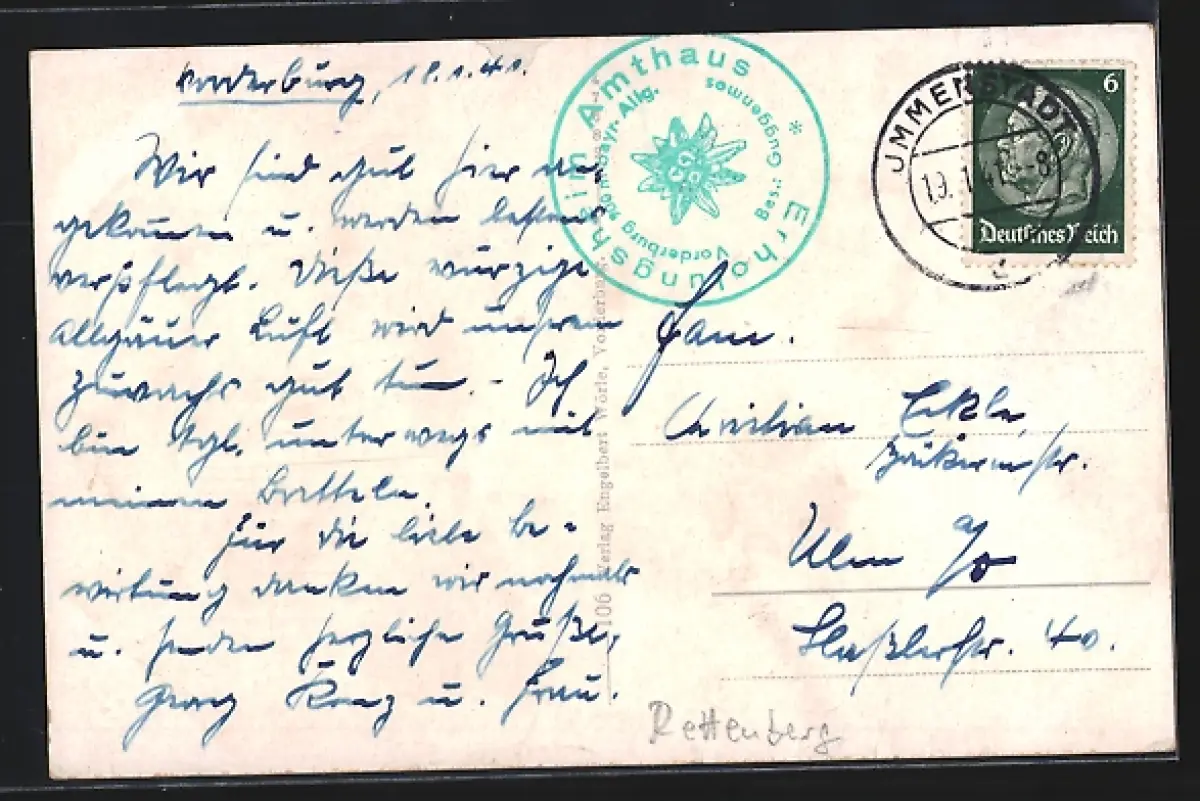 Vorderburg, 18.1.41.
Wir sind gut hier an-
gekommen u. werden bestens
verpflegt. Diese würzige
Allgäuer Luft wird unserem
Zuwachs gut tun. - Ich
bin tägl. unterwegs mit
meinen Bretteln.
Für die liebe Be-
wirtung danken wir nochmals
u. senden herzliche Grüße,
Georg Kranz u. Frau.
Erholungsheim Amthaus *
Vorderburg bayr. Allg.
Bes.: Guggenmos
106 Verlag Engelbert Wörle, Vorderburg
IMMENSTADT
19.1.41 -8
6
Deutsches Reich
Fam.
Christian Eckle,
Ulm a/D
Haßlerstr. 40.
Rettenberg